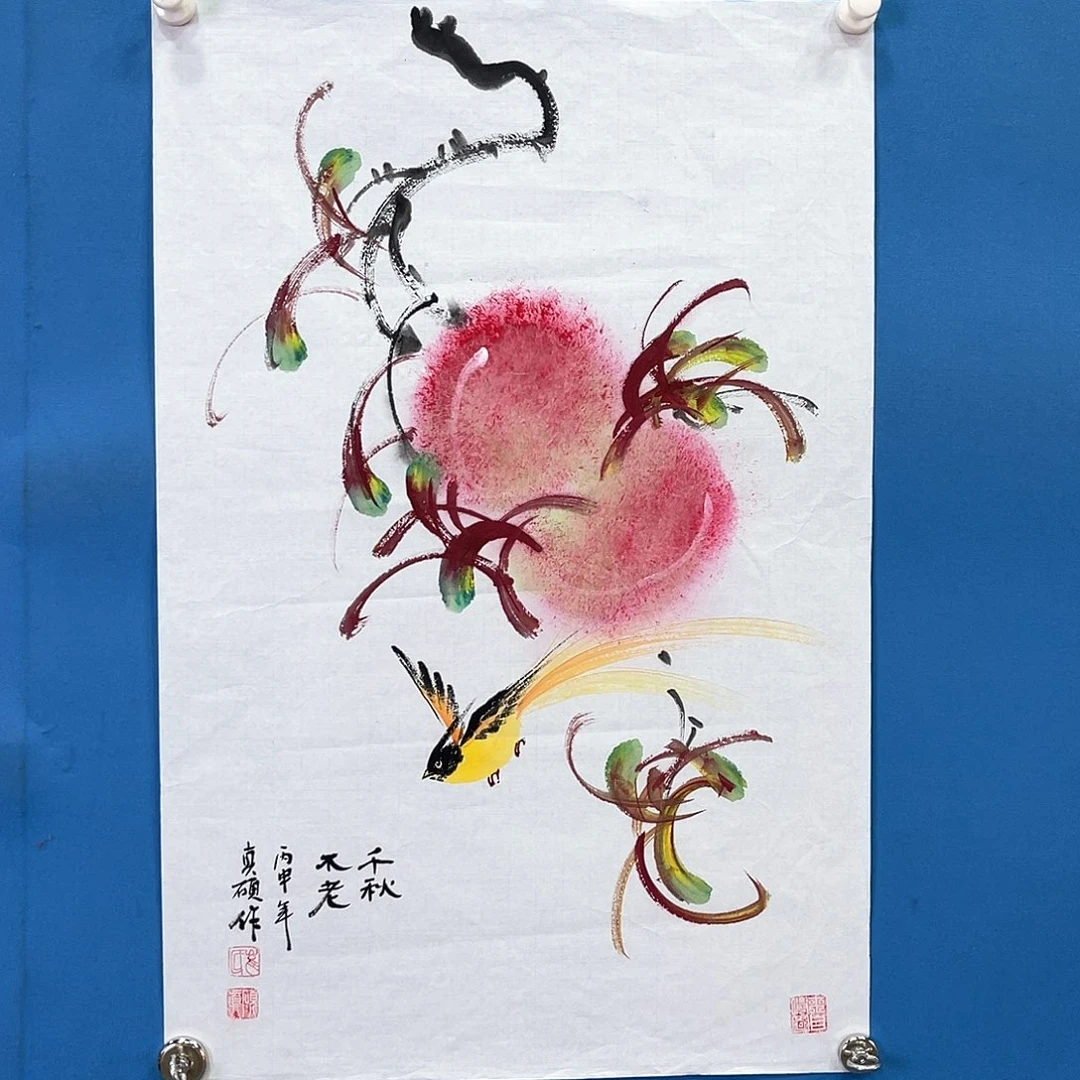 千秋
不老
丙申年
真硕作